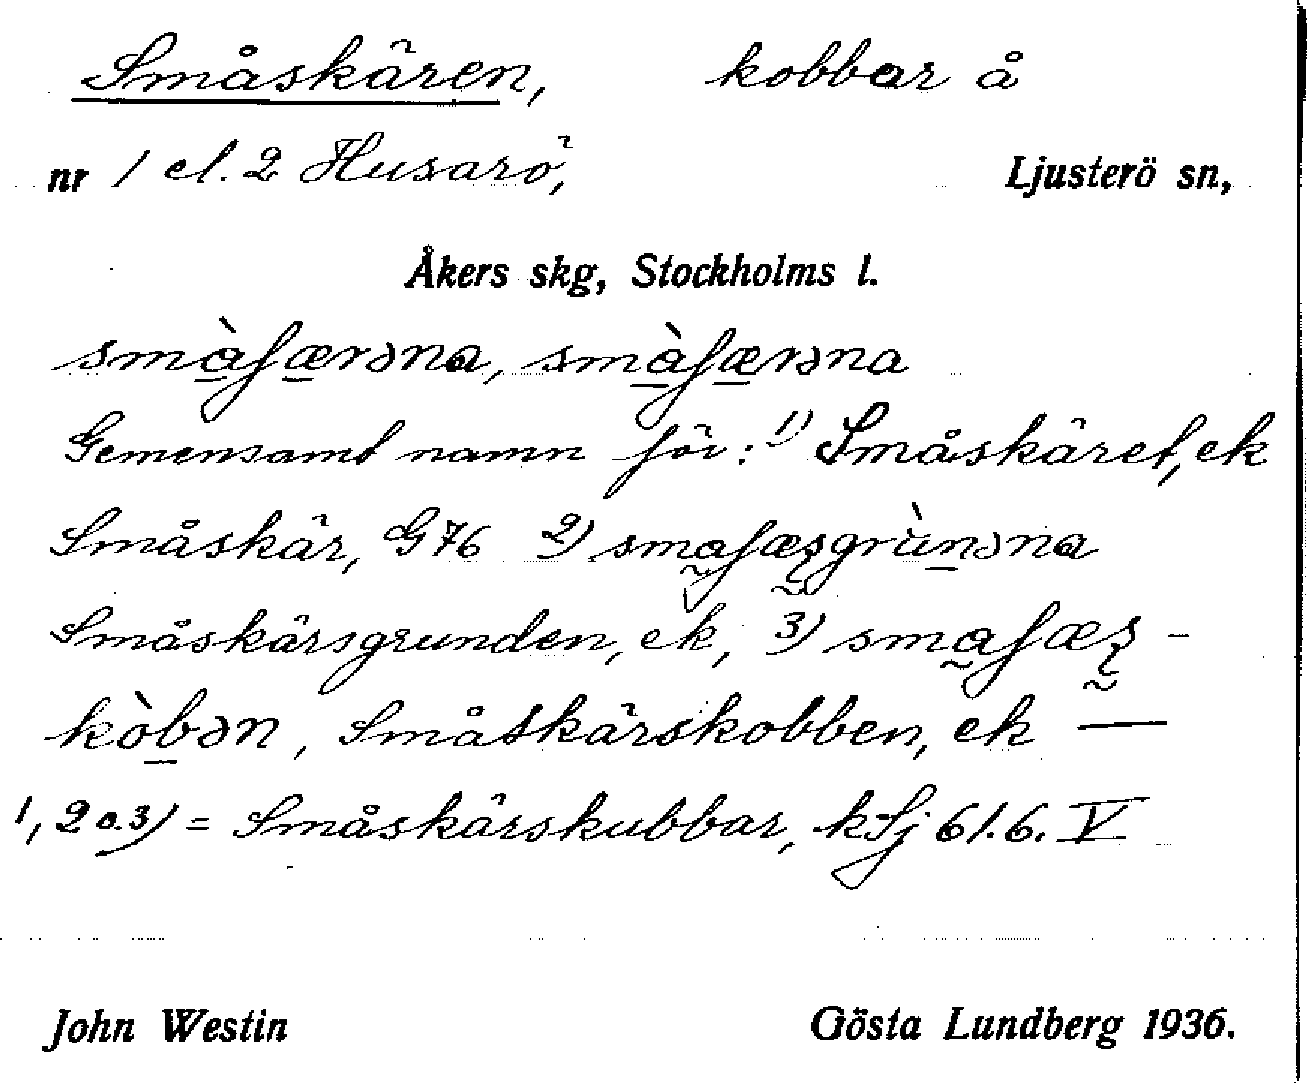 Småskären, kobbar å
nr 1 el. 2 Husarö, Ljusterö sn,
Åkers skg, Stockholms l.
smàʃærəna, smàʃærəna
Gemensamt namn för: 1) Småskäret, ek
Småskär, G 76 2) smaʃæʂgrùnəna
Småskärsgrunden, ek, 3) smaʃæʂ-
kòbən, Småskärskobben, ek —
1, 2 o. 3) = Småskärskubbar, kSj 61.6. V.
John Westin Gösta Lundberg 1936.